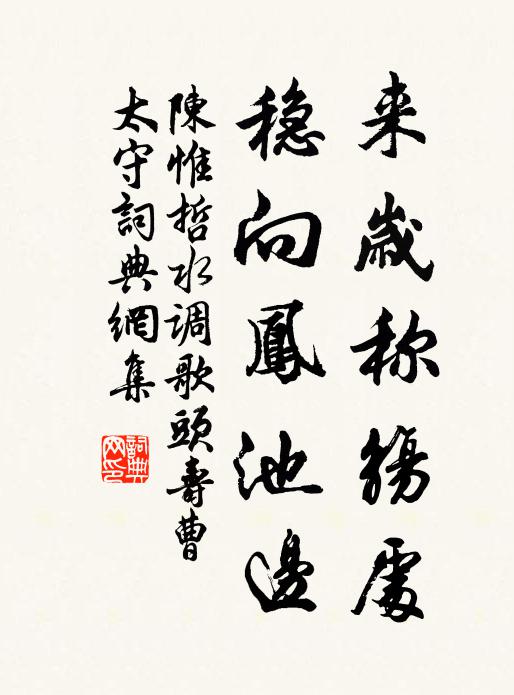 来歲称觴處
穩向鳳池邊
陳惟哲水调歌頭壽曹
太守詞典網集
詞典網印